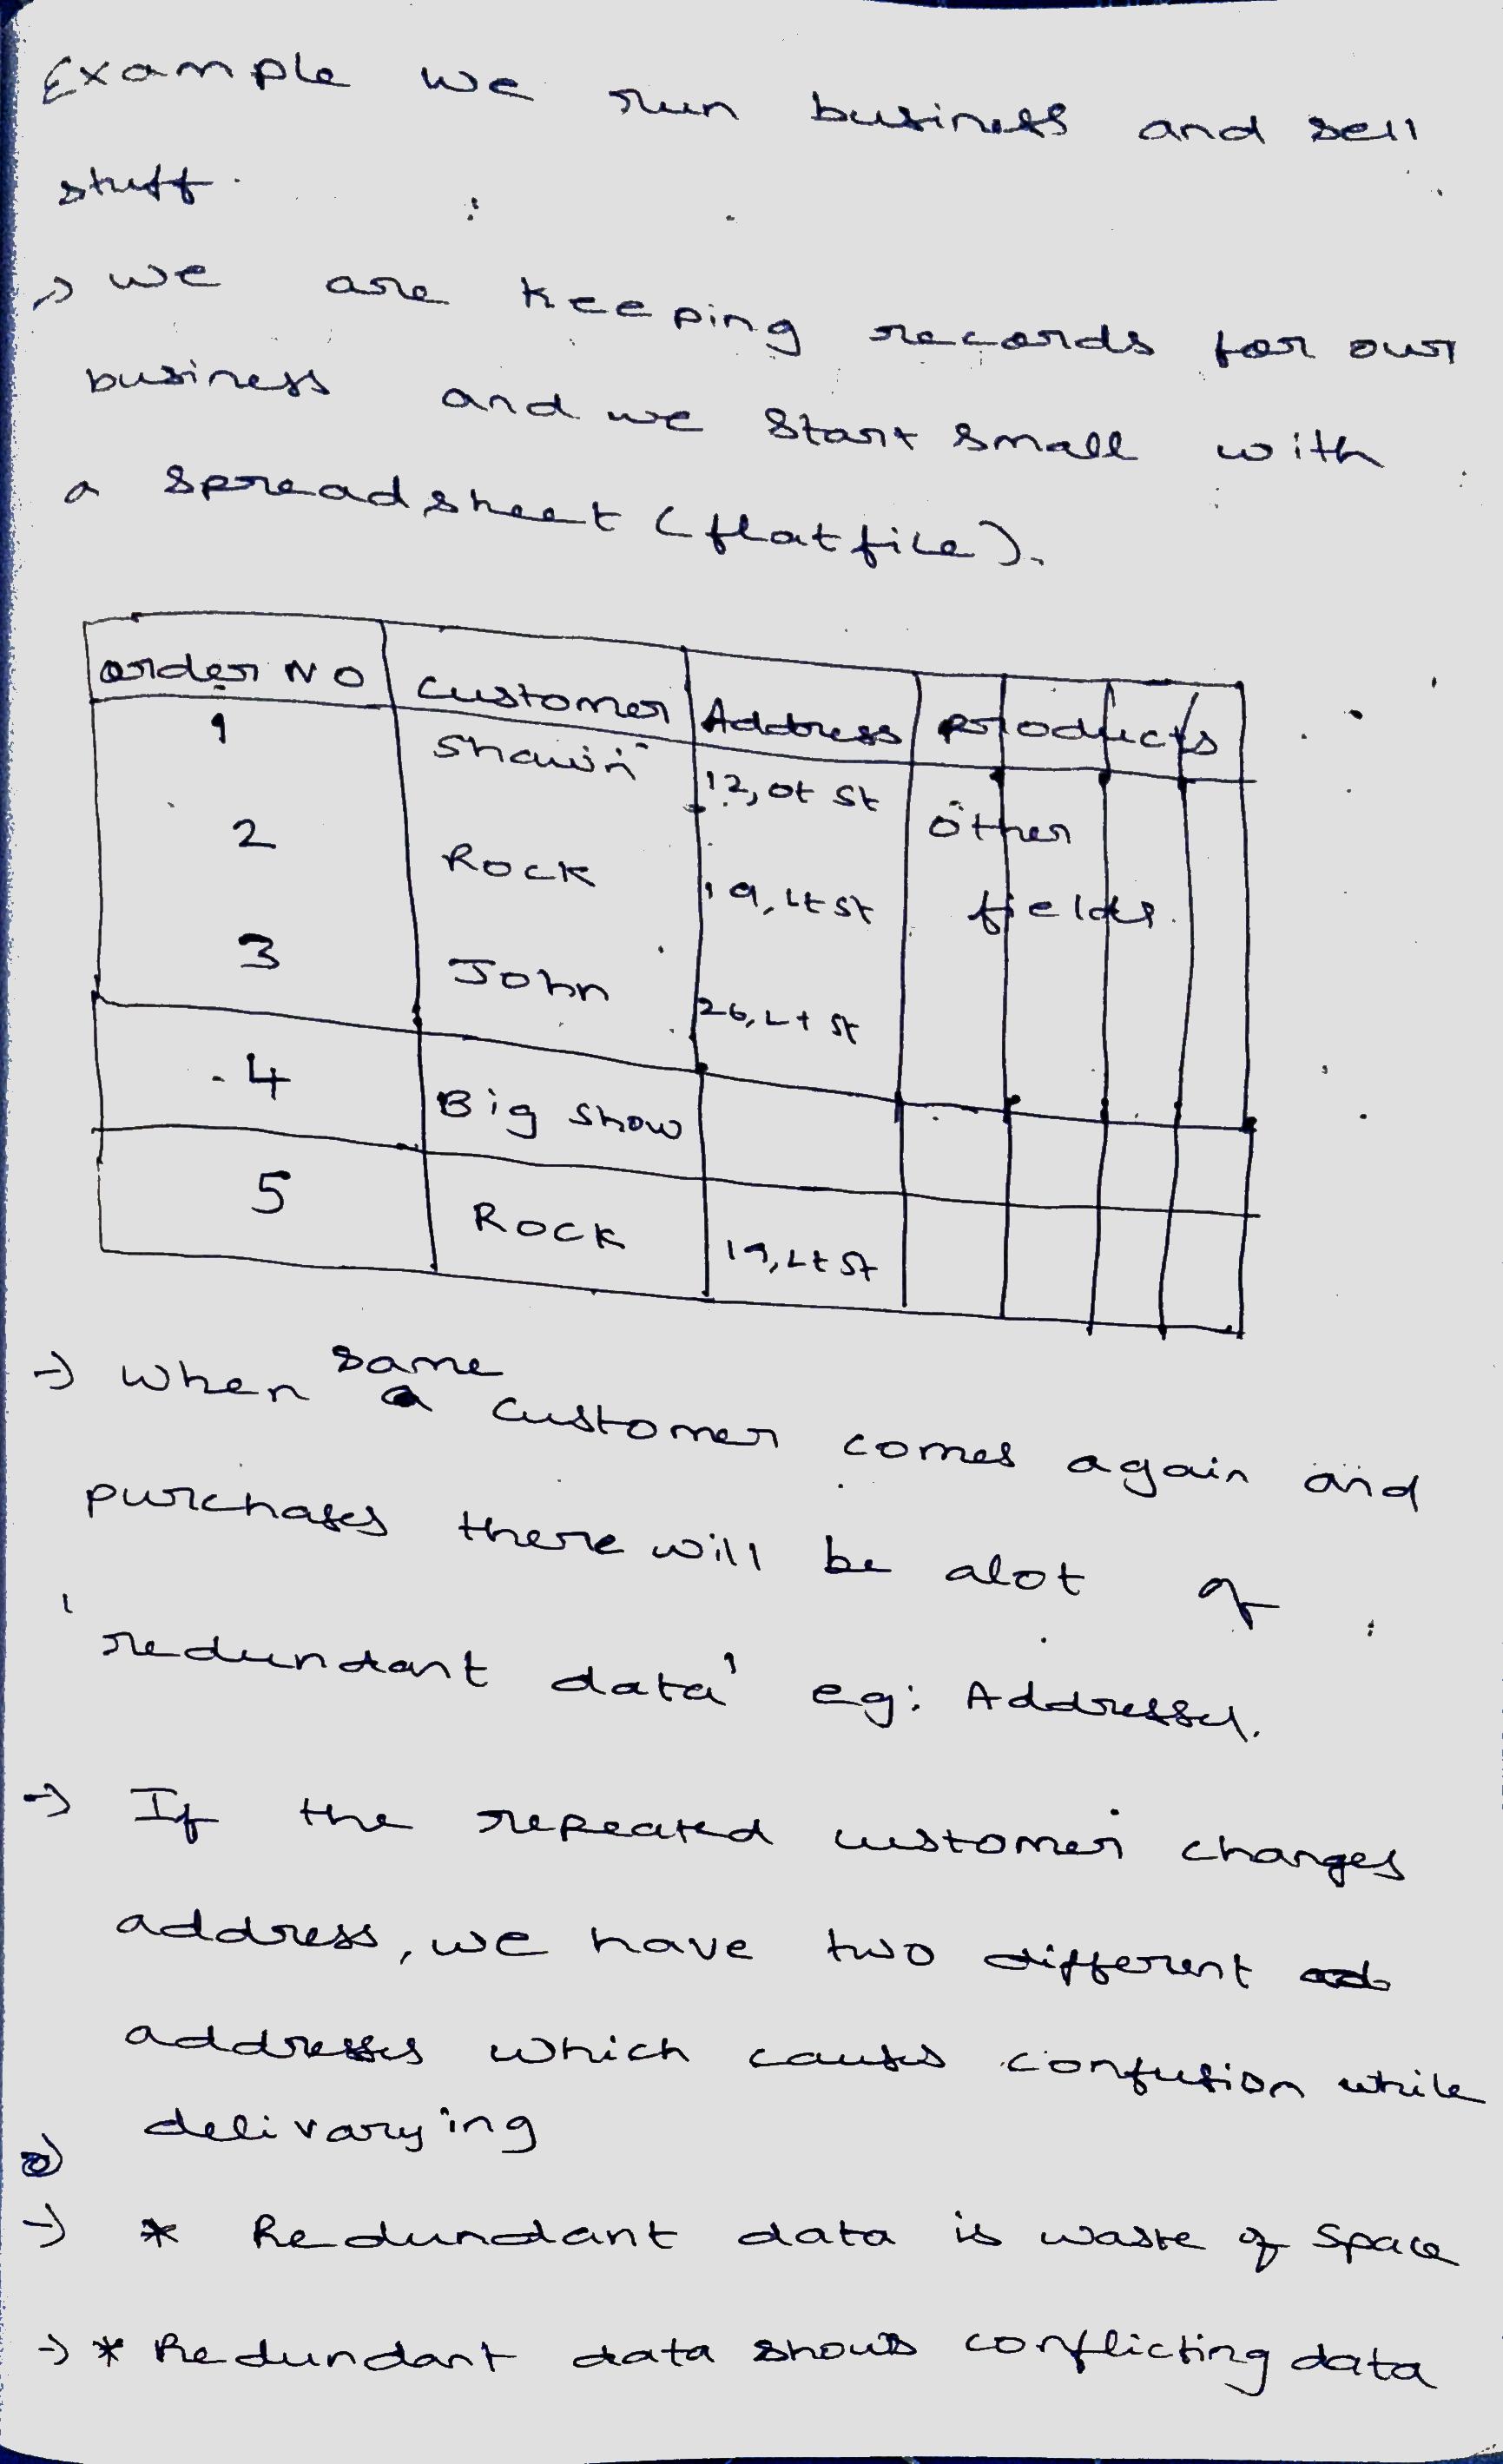 Example we run business and sell
stuff.
→ we are keeping records for our
business and we start small with
a spreadsheet (flatfile).
order NO Customer Address Products
1 Shawn 12, ot St
Other
2 Rock 19, Lt St
fields
3 John 26, Lt St
4 Big Show
5 Rock 19, Lt St
→ When same customer comes again and
purchases there will be alot of
'redundant data' eg: Addresses.
→ If the repeated customer changes
address, we have two different
addresses which causes confusion while
delivarying
→ * Redundant data is waste of Space
→ * Redundant data shows conflicting data